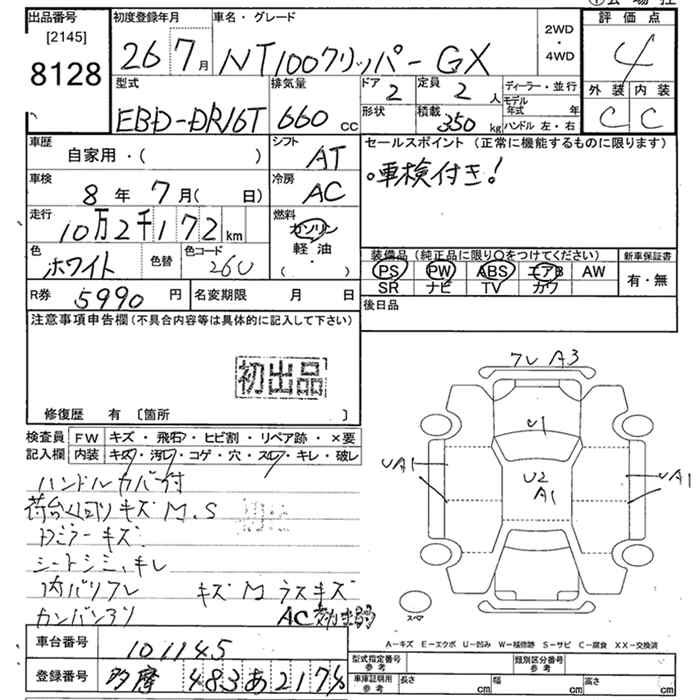 出品番号
[2145]
8128
初度登録年月
26 7月
車名・グレード
NT100クリッパー GX
2WD
・
4WD
評価点
4
外装 内装
C C
型式
EBD-DR16T
排気量
660 cc
ドア
2
定員
2 人
形状
積載
350 kg
ディーラー・並行
モデル年式 年
ハンドル 左・右
車歴
自家用・( )
シフト
AT
車検
8年 7月( 日)
冷房
AC
走行
10万2千172 km
燃料
ガソリン
軽油
( ・ )
色
ホワイト
色替
色コード
26U
R券
5990 円
名変期限 月 日
セールスポイント (正常に機能するものに限ります)
。車検付き!
装備品 (純正品に限り○をつけてください)
新車保証書
PS PW ABS エアB AW
SR ナビ TV カワ
有・無
後日品
注意事項申告欄(不具合内容等は具体的に記入して下さい)
初出品
修復歴 有 〔箇所 〕
検査員
記入欄
FW キズ・飛石・ヒビ割・リペア跡・×要
内装 キズ・汚レ・コゲ・穴・スレ・キレ・破レ
ハンドルカバー付
荷台回り キズ M.S
ドアミラーキズ
シートシミ、キレ
内バリワレ キズM ラスキズ
カンバンアリ
AC
ワレ A3
U1
UA1
U2
A1
UA1
スペア
A-キズ E-エクボ U-凹み W-補修跡 S-サビ C-腐食 XX-交換済
車台番号
101145
登録番号
多摩 483 あ 2174
型式指定番号
参考
類別区分番号
参考
車庫証明用
参考
長さ cm
幅 cm
高さ cm